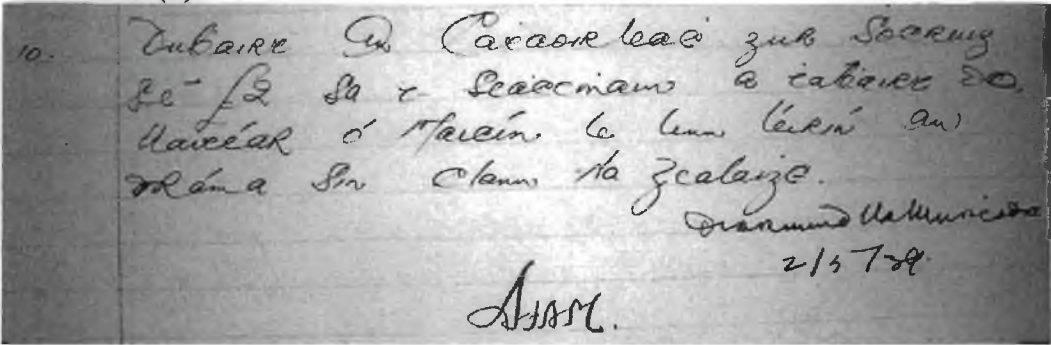 10. Duḃairt An Caṫaoirleaċ gur Socruiġ
Sé £2 Sa t-Seaċtṁain a ṫaḃairt do
Uaitéar ó Maicín le linn léiriú an
dráma Sin Clann na Gealaiġe.
Diarmuid Ua Murċaḋa